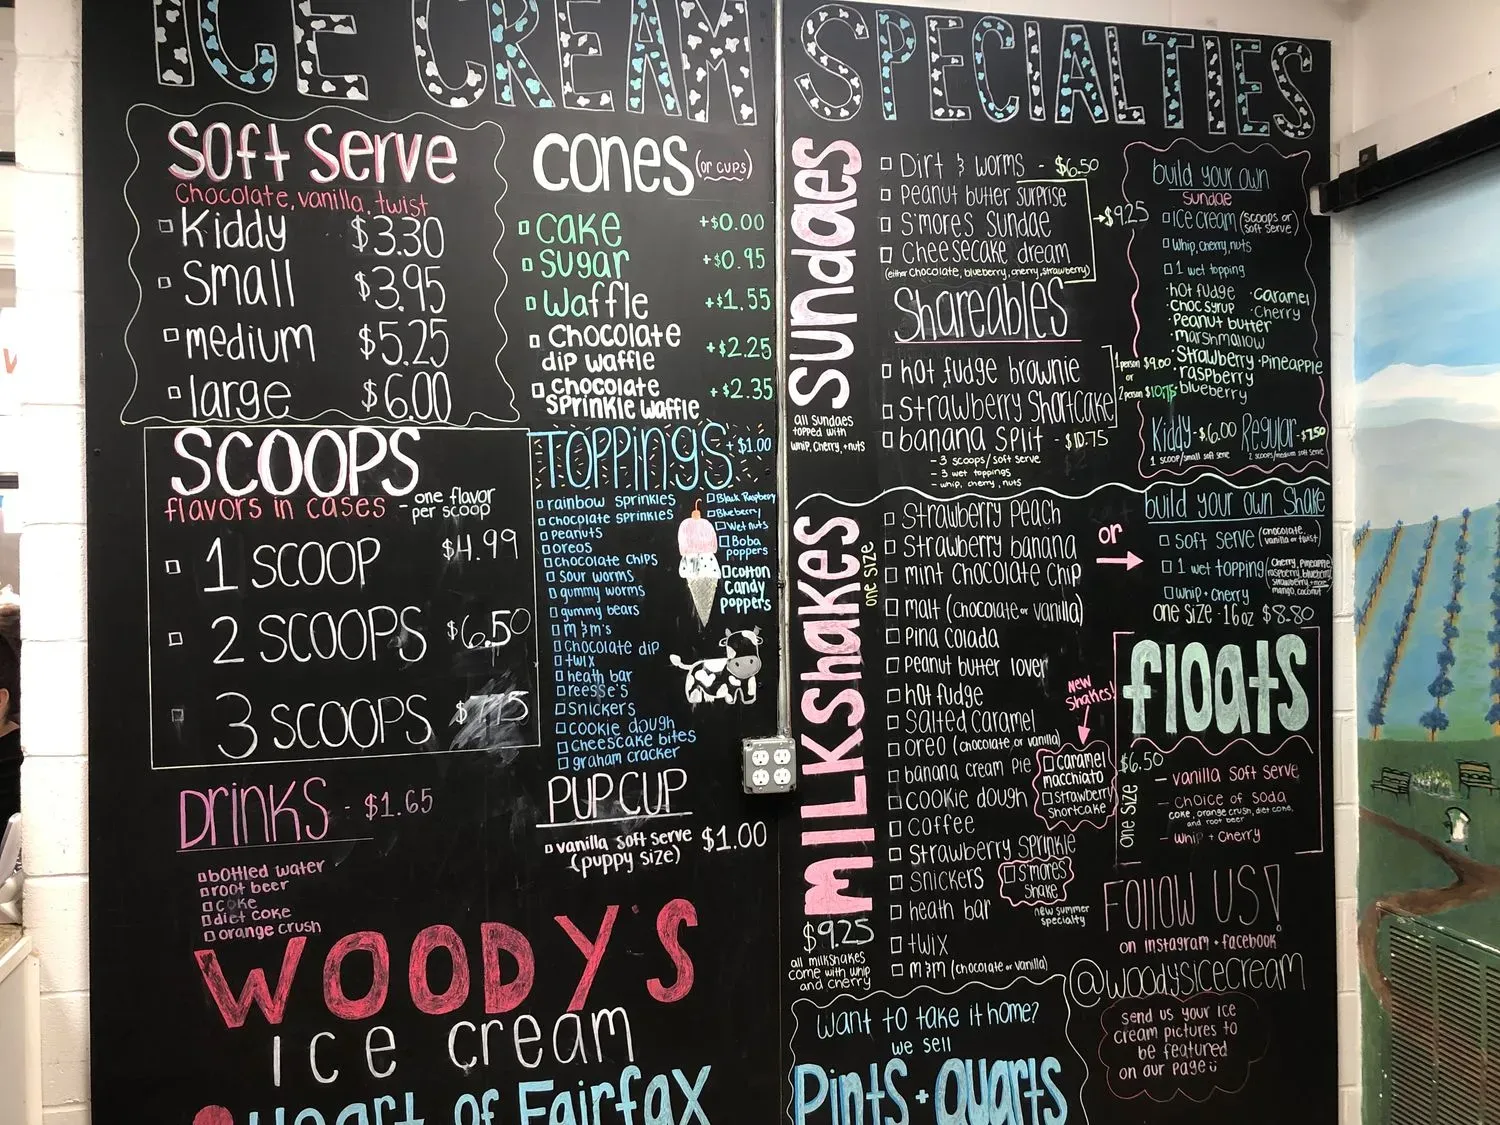 ICE CREAM
Soft Serve
Chocolate, vanilla, twist
Kiddy $3.30
Small $3.95
medium $5.25
large $6.00
CONES (or CUPS)
Cake +$0.00
Sugar +$0.95
Waffle +$1.55
Chocolate
dip waffle +$2.25
Chocolate
Sprinkle waffle +$2.35
SCOOPS
flavors in cases - one flavor
per scoop
1 SCOOP $4.99
2 SCOOPS $6.50
3 SCOOPS $7.75
TOPPINGS +$1.00
rainbow sprinkles
chocolate sprinkles
peanuts
oreos
chocolate chips
sour worms
gummy worms
gummy bears
m&m's
chocolate dip
twix
heath bar
reesse's
Snickers
cookie dough
cheescake bites
graham cracker
Black Raspberry
Blueberry
Wet nuts
Boba
poppers
cotton
Candy
poppers
DRINKS - $1.65
bottled water
root beer
coke
diet coke
orange crush
PUP CUP
vanilla soft serve $1.00
(puppy size)
WOODY'S
ice cream
Heart of Fairfax
SPECIALTIES
Sundaes
all Sundaes
topped with
whip, cherry, +nuts
Dirt & worms - $6.50
Peanut butter Surprise
S'mores Sundae → $9.25
Cheesecake dream
(either chocolate, blueberry, cherry, strawberry)
Shareables
hot fudge brownie
Strawberry Shortcake
1 person $9.00
or
2 person $10.75
banana Split - $10.75
- 3 scoops/soft serve
- 3 wet toppings
- whip, cherry, nuts
build your own
Sundae
Ice cream (scoops or
soft serve)
Whip, cherry, nuts
1 wet topping
·hot fudge ·Caramel
·Choc syrup ·Cherry
·Peanut butter
·marshmallow
·Strawberry ·Pineapple
·raspberry
·blueberry
Kiddy - $6.00 Regular - $7.50
1 scoop/small soft serve 2 scoops/medium soft serve
MILKShakes
one size
$9.25
all milkshakes
come with whip
and cherry
Strawberry Peach
Strawberry banana
mint chocolate chip
malt (chocolate or vanilla)
Pina Colada
Peanut butter lover
hot fudge
Salted Caramel
oreo (chocolate or vanilla)
banana cream Pie
cookie dough
Coffee
Strawberry Sprinkle
Snickers
heath bar
twix
m&m (chocolate or vanilla)
New
Shakes!
caramel
macchiato
Strawberry
Shortcake
S'mores
Shake
new summer
specialty
or →
build your own Shake
soft serve (chocolate,
vanilla or twist)
1 wet topping (Cherry, Pineapple,
raspberry, blueberry,
mango, coconut)
Whip + Cherry
one size - 16oz $8.80
floats
$6.50
one size
- vanilla soft serve
- choice of soda
coke, orange crush, diet coke,
and root beer
- whip + cherry
Follow us!
on instagram + facebook
@woodysicecream
Send us your ice
cream pictures to
be featured
on our page
Want to take it home?
we sell
Pints + Quarts